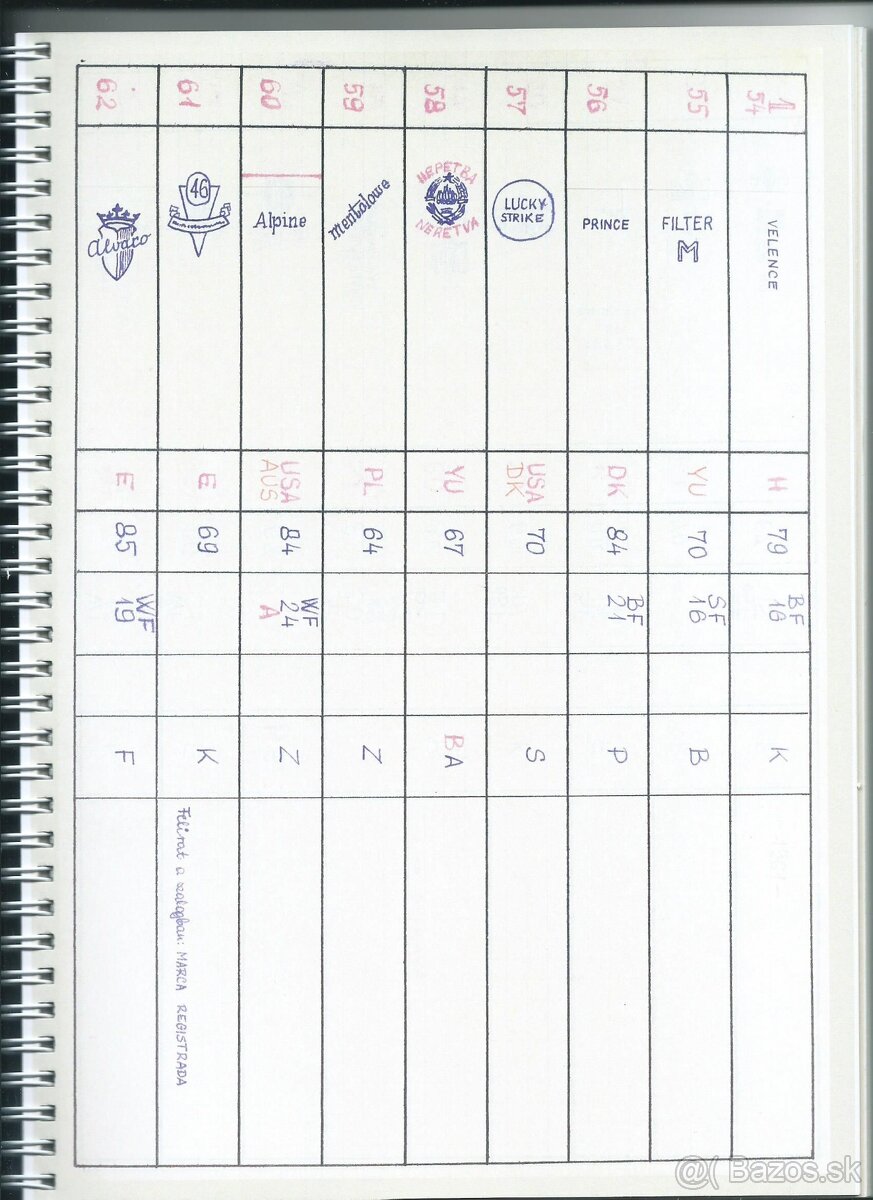 1
54
VELENCE
H
79
BF
16
K
55
FILTER
M
YU
70
SF
16
B
56
PRINCE
DK
84
BF
21
P
57
LUCKY
STRIKE
USA
DK
70
S
58
НЕРЕТВА
NERETVA
YU
67
BA
59
Mentolowe
PL
64
Z
60
Alpine
USA
AUS
84
WF
24
A
Z
61
46
E
69
K
Felirat a szalagban: MARCA REGISTRADA
62
Alvaro
E
85
WF
19
F
@( Bazos.sk